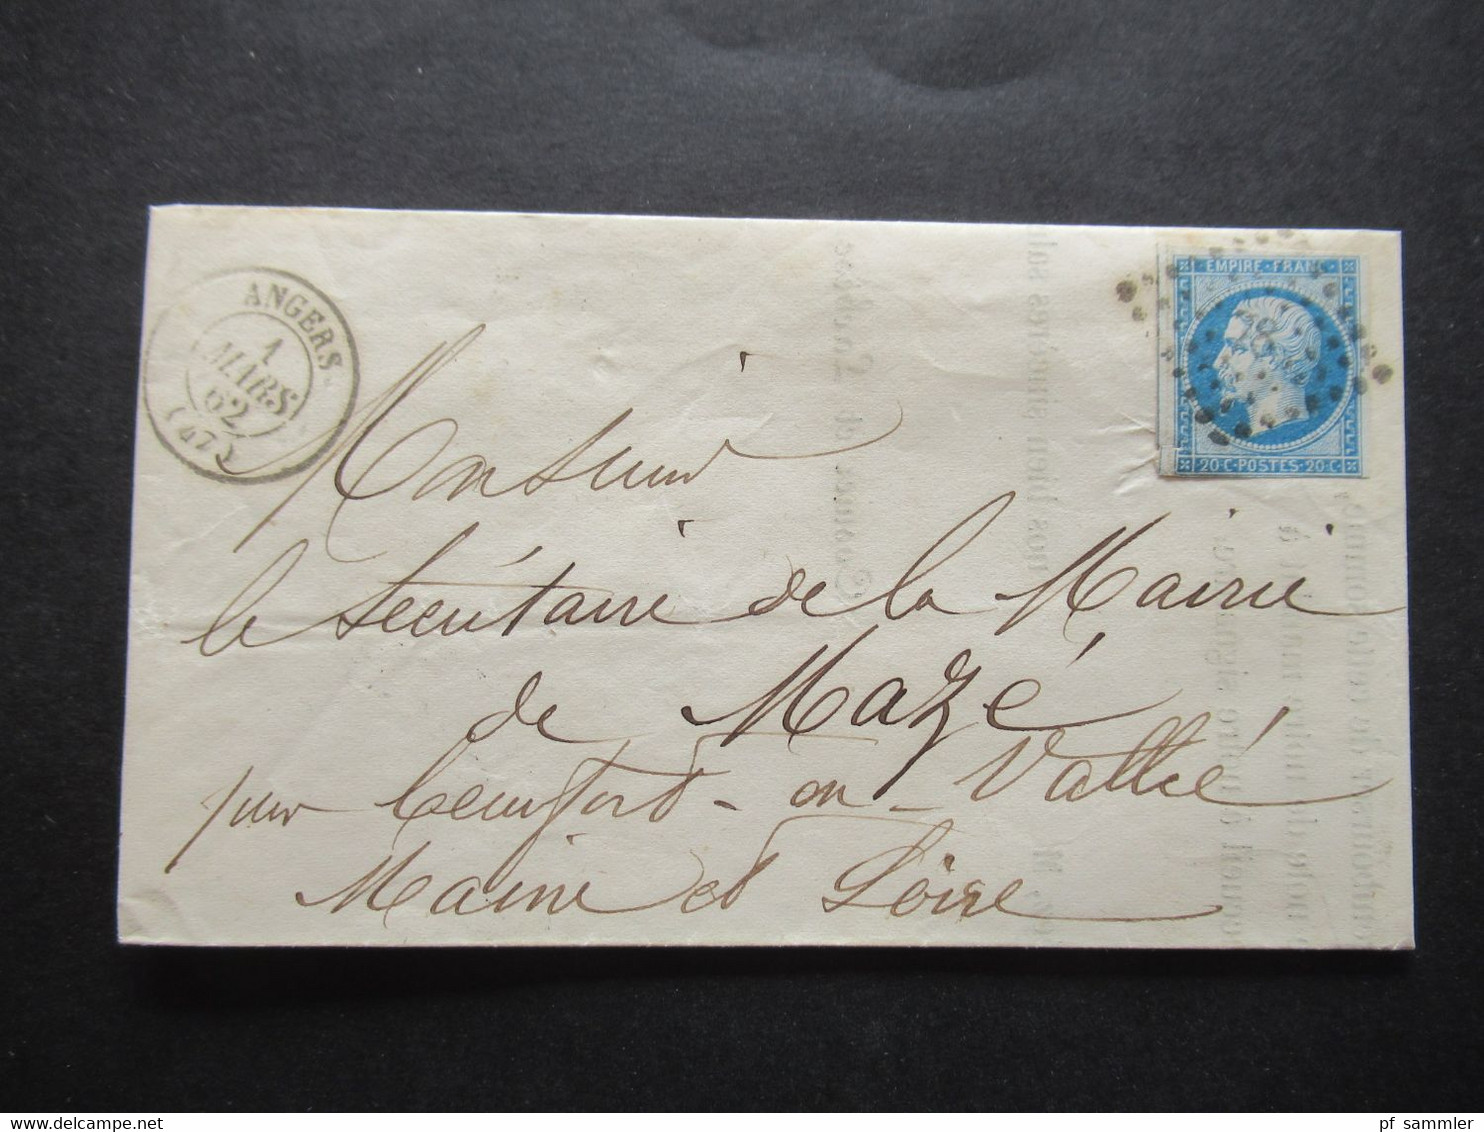 ANGERS
1
MARS
62
(47)
EMPIRE FRANC
20·C·POSTES·20·C·
Monsieur
le Secrétaire de la Mairie
de Mazé
par Beaufort-en-Vallée
Maine et Loire
www.delcampe.net
pf_sammler